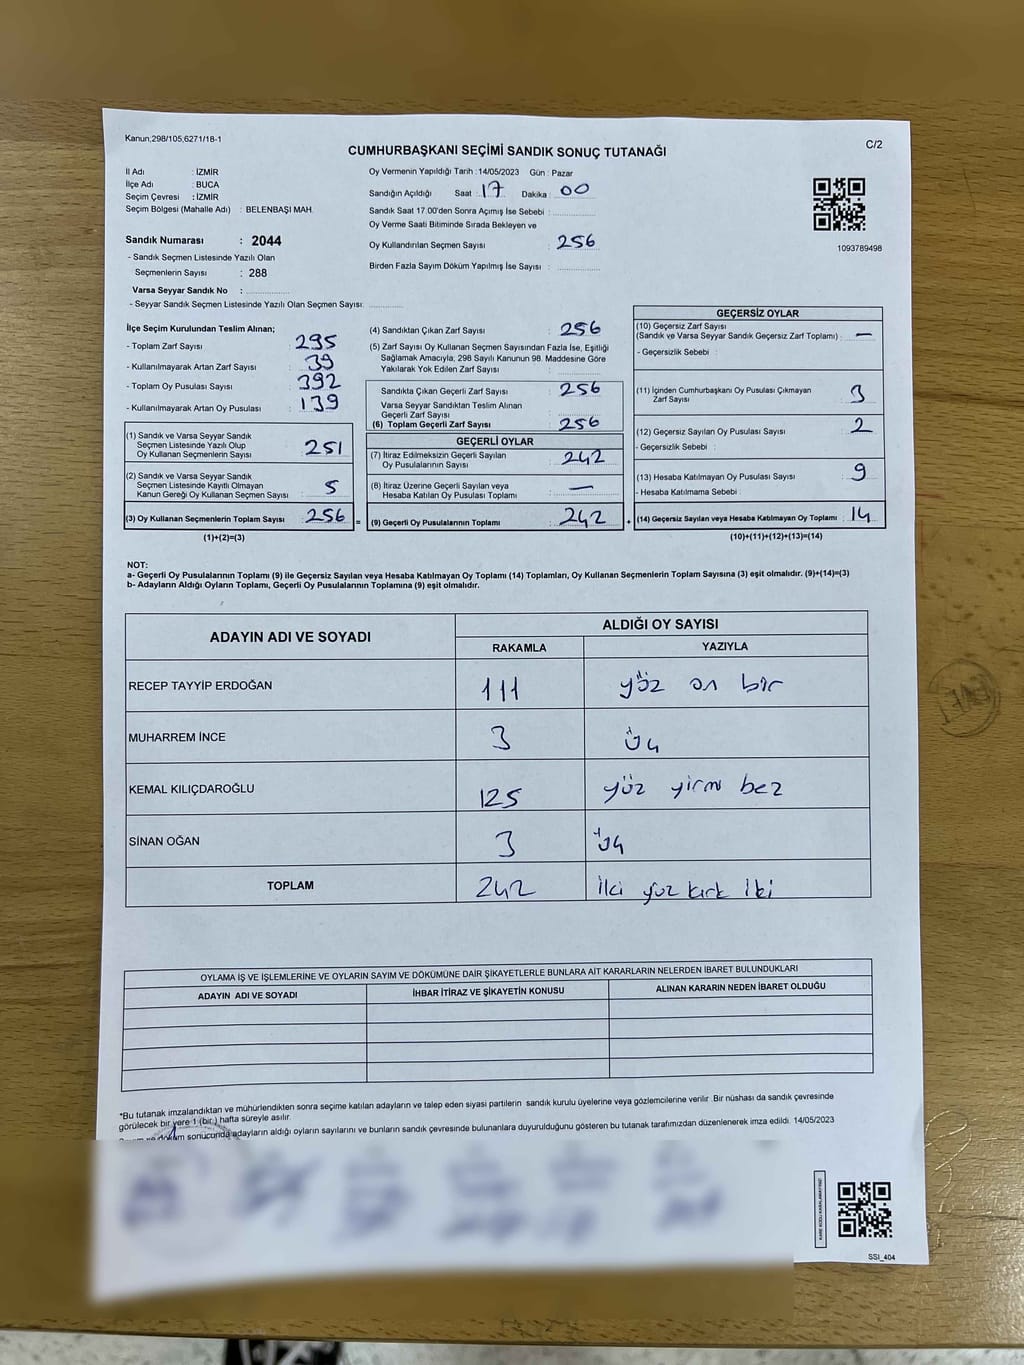 Kanun,298/105,6271/18-1
C/2
CUMHURBAŞKANI SEÇİMİ SANDIK SONUÇ TUTANAĞI
İl Adı : İZMİR
İlçe Adı : BUCA
Seçim Çevresi : İZMİR
Seçim Bölgesi (Mahalle Adı) : BELENBAŞI MAH.
Sandık Numarası : 2044
- Sandık Seçmen Listesinde Yazılı Olan
Seçmenlerin Sayısı : 288
Varsa Seyyar Sandık No :
- Seyyar Sandık Seçmen Listesinde Yazılı Olan Seçmen Sayısı:
Oy Vermenin Yapıldığı Tarih : 14/05/2023 Gün : Pazar
Sandığın Açıldığı Saat : 17 Dakika : 00
Sandık Saat 17.00'den Sonra Açımış İse Sebebi :
Oy Verme Saati Bitiminde Sırada Bekleyen ve
Oy Kullandırılan Seçmen Sayısı : 256
Birden Fazla Sayım Döküm Yapılmış İse Sayısı :
1093789498
İlçe Seçim Kurulundan Teslim Alınan;
- Toplam Zarf Sayısı : 295
- Kullanılmayarak Artan Zarf Sayısı : 39
- Toplam Oy Pusulası Sayısı : 392
- Kullanılmayarak Artan Oy Pusulası : 139
(1) Sandık ve Varsa Seyyar Sandık
Seçmen Listesinde Yazılı Olup
Oy Kullanan Seçmenlerin Sayısı : 251
(2) Sandık ve Varsa Seyyar Sandık
Seçmen Listesinde Kayıtlı Olmayan
Kanun Gereği Oy Kullanan Seçmen Sayısı : 5
(3) Oy Kullanan Seçmenlerin Toplam Sayısı : 256 =
(1)+(2)=(3)
(4) Sandıktan Çıkan Zarf Sayısı : 256
(5) Zarf Sayısı Oy Kullanan Seçmen Sayısından Fazla İse, Eşitliği
Sağlamak Amacıyla; 298 Sayılı Kanunun 98. Maddesine Göre
Yakılarak Yok Edilen Zarf Sayısı :
Sandıkta Çıkan Geçerli Zarf Sayısı : 256
Varsa Seyyar Sandıktan Teslim Alınan
Geçerli Zarf Sayısı :
(6) Toplam Geçerli Zarf Sayısı : 256
GEÇERLİ OYLAR
(7) İtiraz Edilmeksizin Geçerli Sayılan
Oy Pusulalarının Sayısı : 242
(8) İtiraz Üzerine Geçerli Sayılan veya
Hesaba Katılan Oy Pusulası Toplamı : —
(9) Geçerli Oy Pusulalarının Toplamı : 242 +
GEÇERSİZ OYLAR
(10) Geçersiz Zarf Sayısı
(Sandık ve Varsa Seyyar Sandık Geçersiz Zarf Toplamı) : —
- Geçersizlik Sebebi :
(11) İçinden Cumhurbaşkanı Oy Pusulası Çıkmayan
Zarf Sayısı : 3
(12) Geçersiz Sayılan Oy Pusulası Sayısı : 2
- Geçersizlik Sebebi :
(13) Hesaba Katılmayan Oy Pusulası Sayısı : 9
- Hesaba Katılmama Sebebi :
(14) Geçersiz Sayılan veya Hesaba Katılmayan Oy Toplamı : 14
(10)+(11)+(12)+(13)=(14)
NOT:
a- Geçerli Oy Pusulalarının Toplamı (9) ile Geçersiz Sayılan veya Hesaba Katılmayan Oy Toplamı (14) Toplamları, Oy Kullanan Seçmenlerin Toplam Sayısına (3) eşit olmalıdır. (9)+(14)=(3)
b- Adayların Aldığı Oyların Toplamı, Geçerli Oy Pusulalarının Toplamına (9) eşit olmalıdır.
ADAYIN ADI VE SOYADI
ALDIĞI OY SAYISI
RAKAMLA YAZIYLA
RECEP TAYYİP ERDOĞAN 111 yüz on bir
MUHARREM İNCE 3 Üç
KEMAL KILIÇDAROĞLU 125 yüz yirmi beş
SİNAN OĞAN 3 Üç
TOPLAM 242 İki yüz kırk İki
OYLAMA İŞ VE İŞLEMLERİNE VE OYLARIN SAYIM VE DÖKÜMÜNE DAİR ŞİKAYETLERLE BUNLARA AİT KARARLARIN NELERDEN İBARET BULUNDUKLARI
ADAYIN ADI VE SOYADI İHBAR İTİRAZ VE ŞİKAYETİN KONUSU ALINAN KARARIN NEDEN İBARET OLDUĞU
*Bu tutanak imzalandıktan ve mühürlendikten sonra seçime katılan adayların ve talep eden siyasi partilerin sandık kurulu üyelerine veya gözlemcilerine verilir. Bir nüshası da sandık çevresinde
görülecek bir yere 1 (bir) hafta süreyle asılır.
sonucunda adayların aldığı oyların sayılarını ve bunların sandık çevresinde bulunanlara duyurulduğunu gösteren bu tutanak tarafımızdan düzenlenerek imza edildi. 14/05/2023
SSI_404